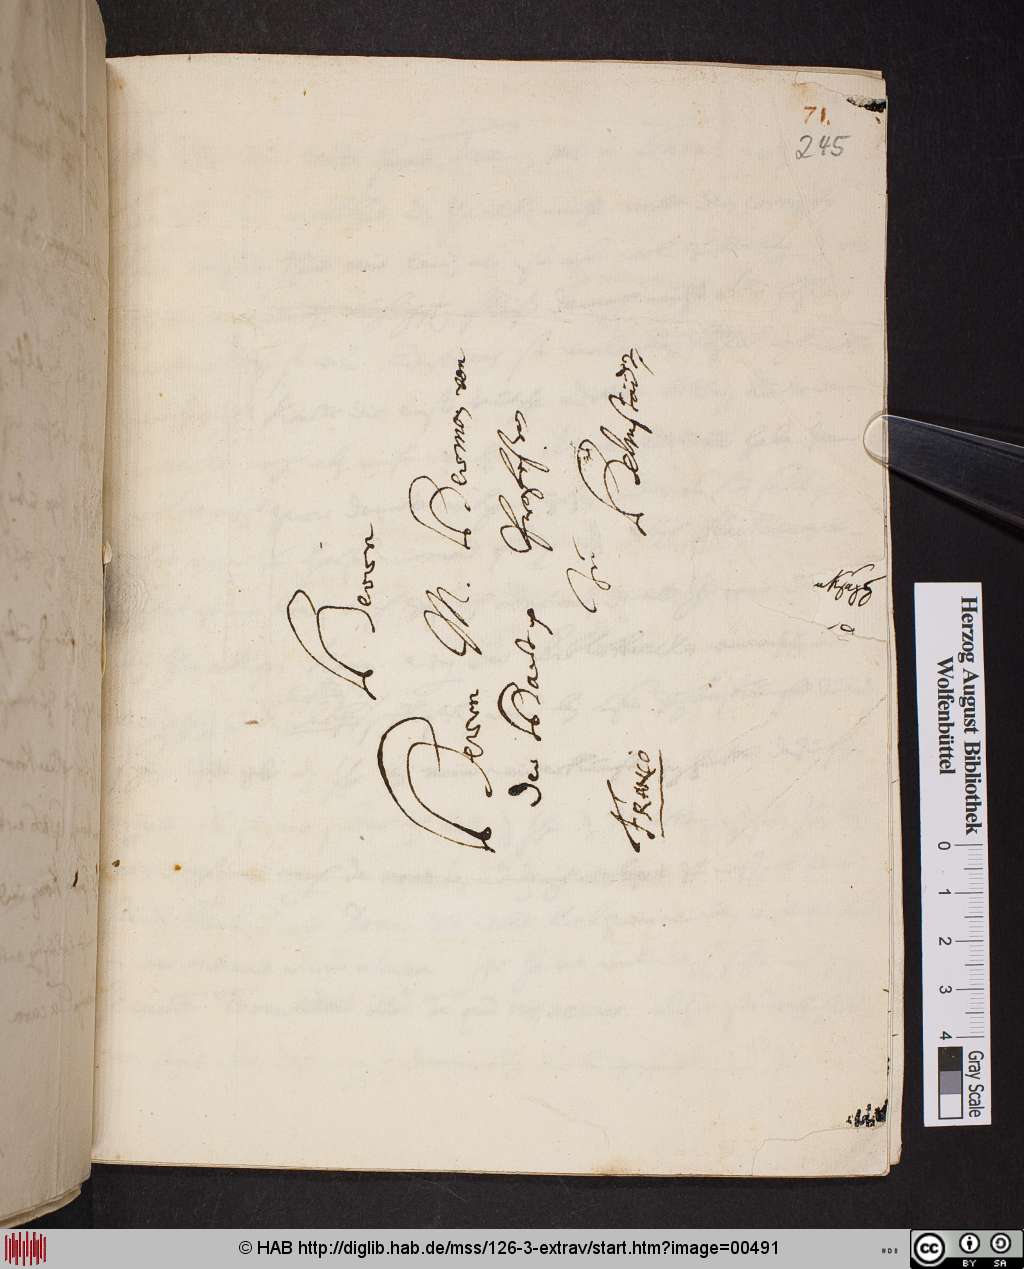 71.
245
Herrn
Herrn M. Herman von
der Hardt
Zu
Helmstädt
FRANCO
Herzog August Bibliothek
Wolfenbüttel
0 1 2 3 4
Gray Scale
© HAB http://diglib.hab.de/mss/126-3-extrav/start.htm?image=00491
cc BY SA